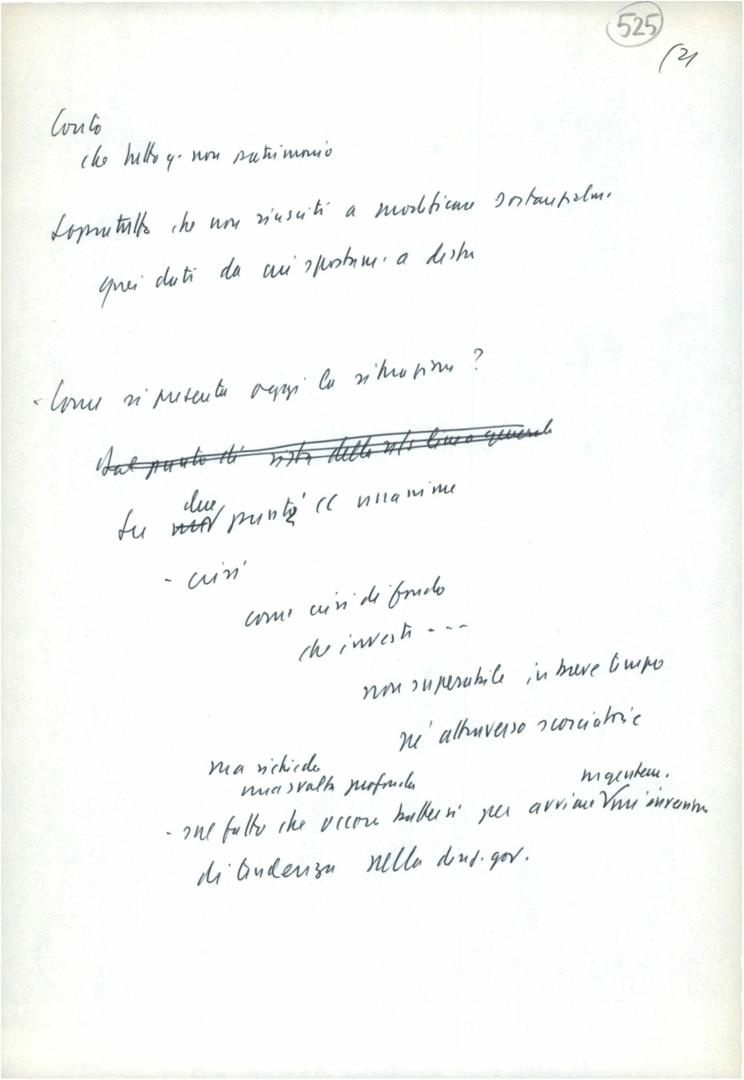 525
(2)
Conto
che tutto q. non patrimonio
Sopratutto che non riusciti a modificare sostanzialm.
quei dati da cui spostam. a destra
- Come si presenta oggi la situazione ?
Dal punto di vista della linea generale
due
Su punti CC unanime
- crisi
come crisi di fondo
che investe ---
non superabile in breve tempo
nè attraverso scorciatoie
ma richiede
una svolta profonda
urgentem.
- sul fatto che occorre battersi per avviare un'inversione
di tendenza nella direz. gov.